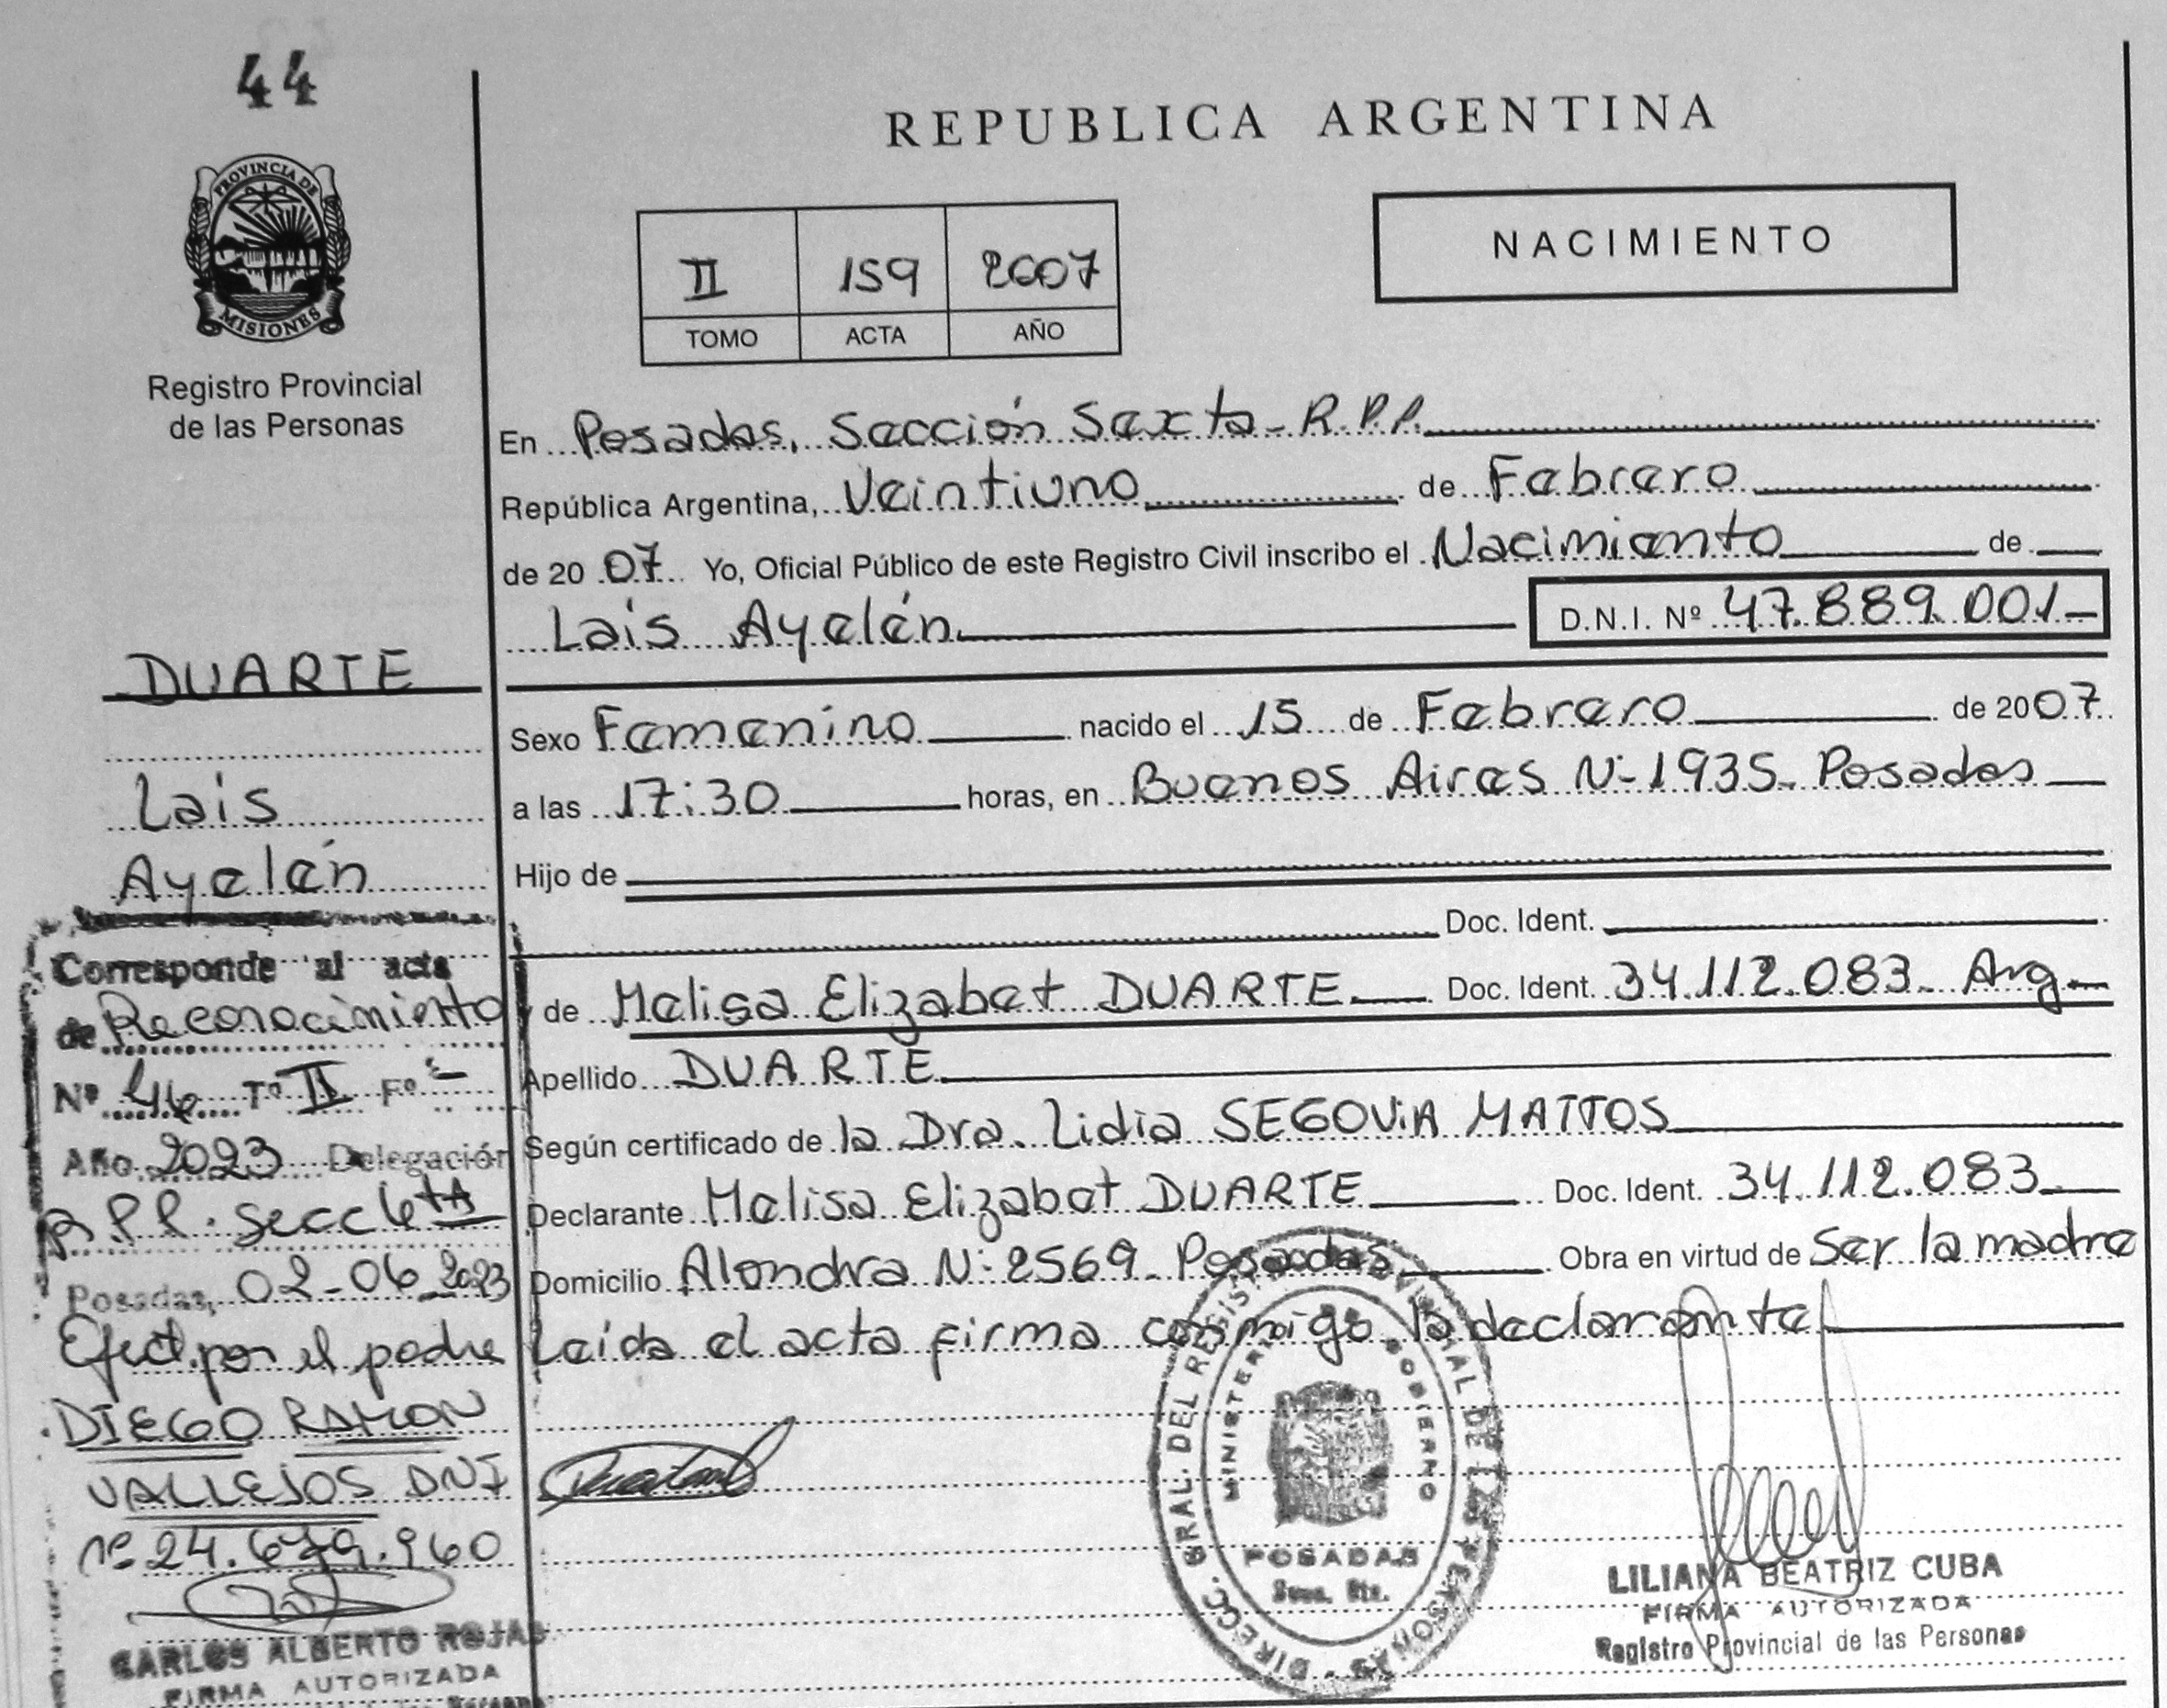 44
PROVINCIA DE
MISIONES
Registro Provincial
de las Personas
REPUBLICA ARGENTINA
II 159 2007
TOMO ACTA AÑO
NACIMIENTO
En Posadas, Sección Sexta - R.P.P.
República Argentina, Veintiuno de Febrero
de 2007 Yo, Oficial Público de este Registro Civil inscribo el Nacimiento de
Lais Ayelén D.N.I. Nº 47.889.001-
Sexo Femenino nacido el 15 de Febrero de 2007
a las 17:30 horas, en Buenos Aires Nº 1935- Posadas
Hijo de
Doc. Ident.
y de Melisa Elizabet DUARTE Doc. Ident. 34.112.083- Arg-
Apellido DUARTE
Según certificado de la Dra. Lidia SEGOVIA MATTOS
Declarante Melisa Elizabet DUARTE Doc. Ident. 34.112.083
Domicilio Alondra Nº 2569- Posadas Obra en virtud de Ser la madre
Leída el acta firma conmigo la declarante
DUARTE
Lais
Ayelén
Corresponde al acta
de Reconocimiento
Nº 46 Tº II Fº -
Año 2023 Delegación
R.P.P. Secc 6ta
Posadas, 02-06-2023
Efect. por el padre
DIEGO RAMON
VALLEJOS DNI
nº 24.679.960
CARLOS ALBERTO ROJAS
FIRMA AUTORIZADA
DIRECC. GRAL. DEL REGISTRO PROVINCIAL DE LAS PERSONAS
MINISTERIO GOBIERNO
POSADAS
LILIANA BEATRIZ CUBA
FIRMA AUTORIZADA
Registro Provincial de las Personas